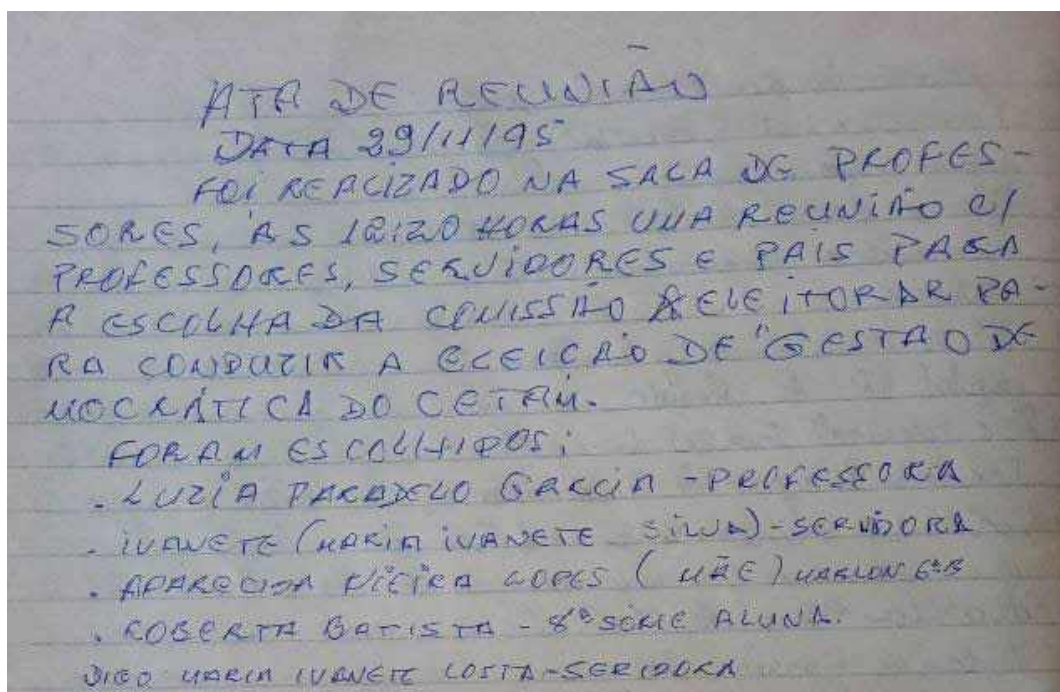 ATA DE REUNIÃO
DATA 29/11/95
FOI REALIZADO NA SALA DE PROFES-
SORES, ÀS 12:20 HORAS UMA REUNIÃO C/
PROFESSORES, SERVIDORES E PAIS PARA
A ESCOLHA DA COMISSÃO ELEITORAR PA-
RA CONDUZIR A ELEIÇÃO DE "GESTÃO DE
MOCRÁTICA DO CETAM.
FORAM ESCOLHIDOS:
. LUZIA PARADELO GARCIA - PROFESSORA
. IVANETE (MARIA IVANETE SILVA) - SERVIDORA
. APARECIDA VIEIRA LOPES (MÃE) MARLON 6ªB
. ROBERTA BATISTA - 8ª SÉRIE ALUNA.
DIGO MARIA IVANETE COSTA - SERIDORA